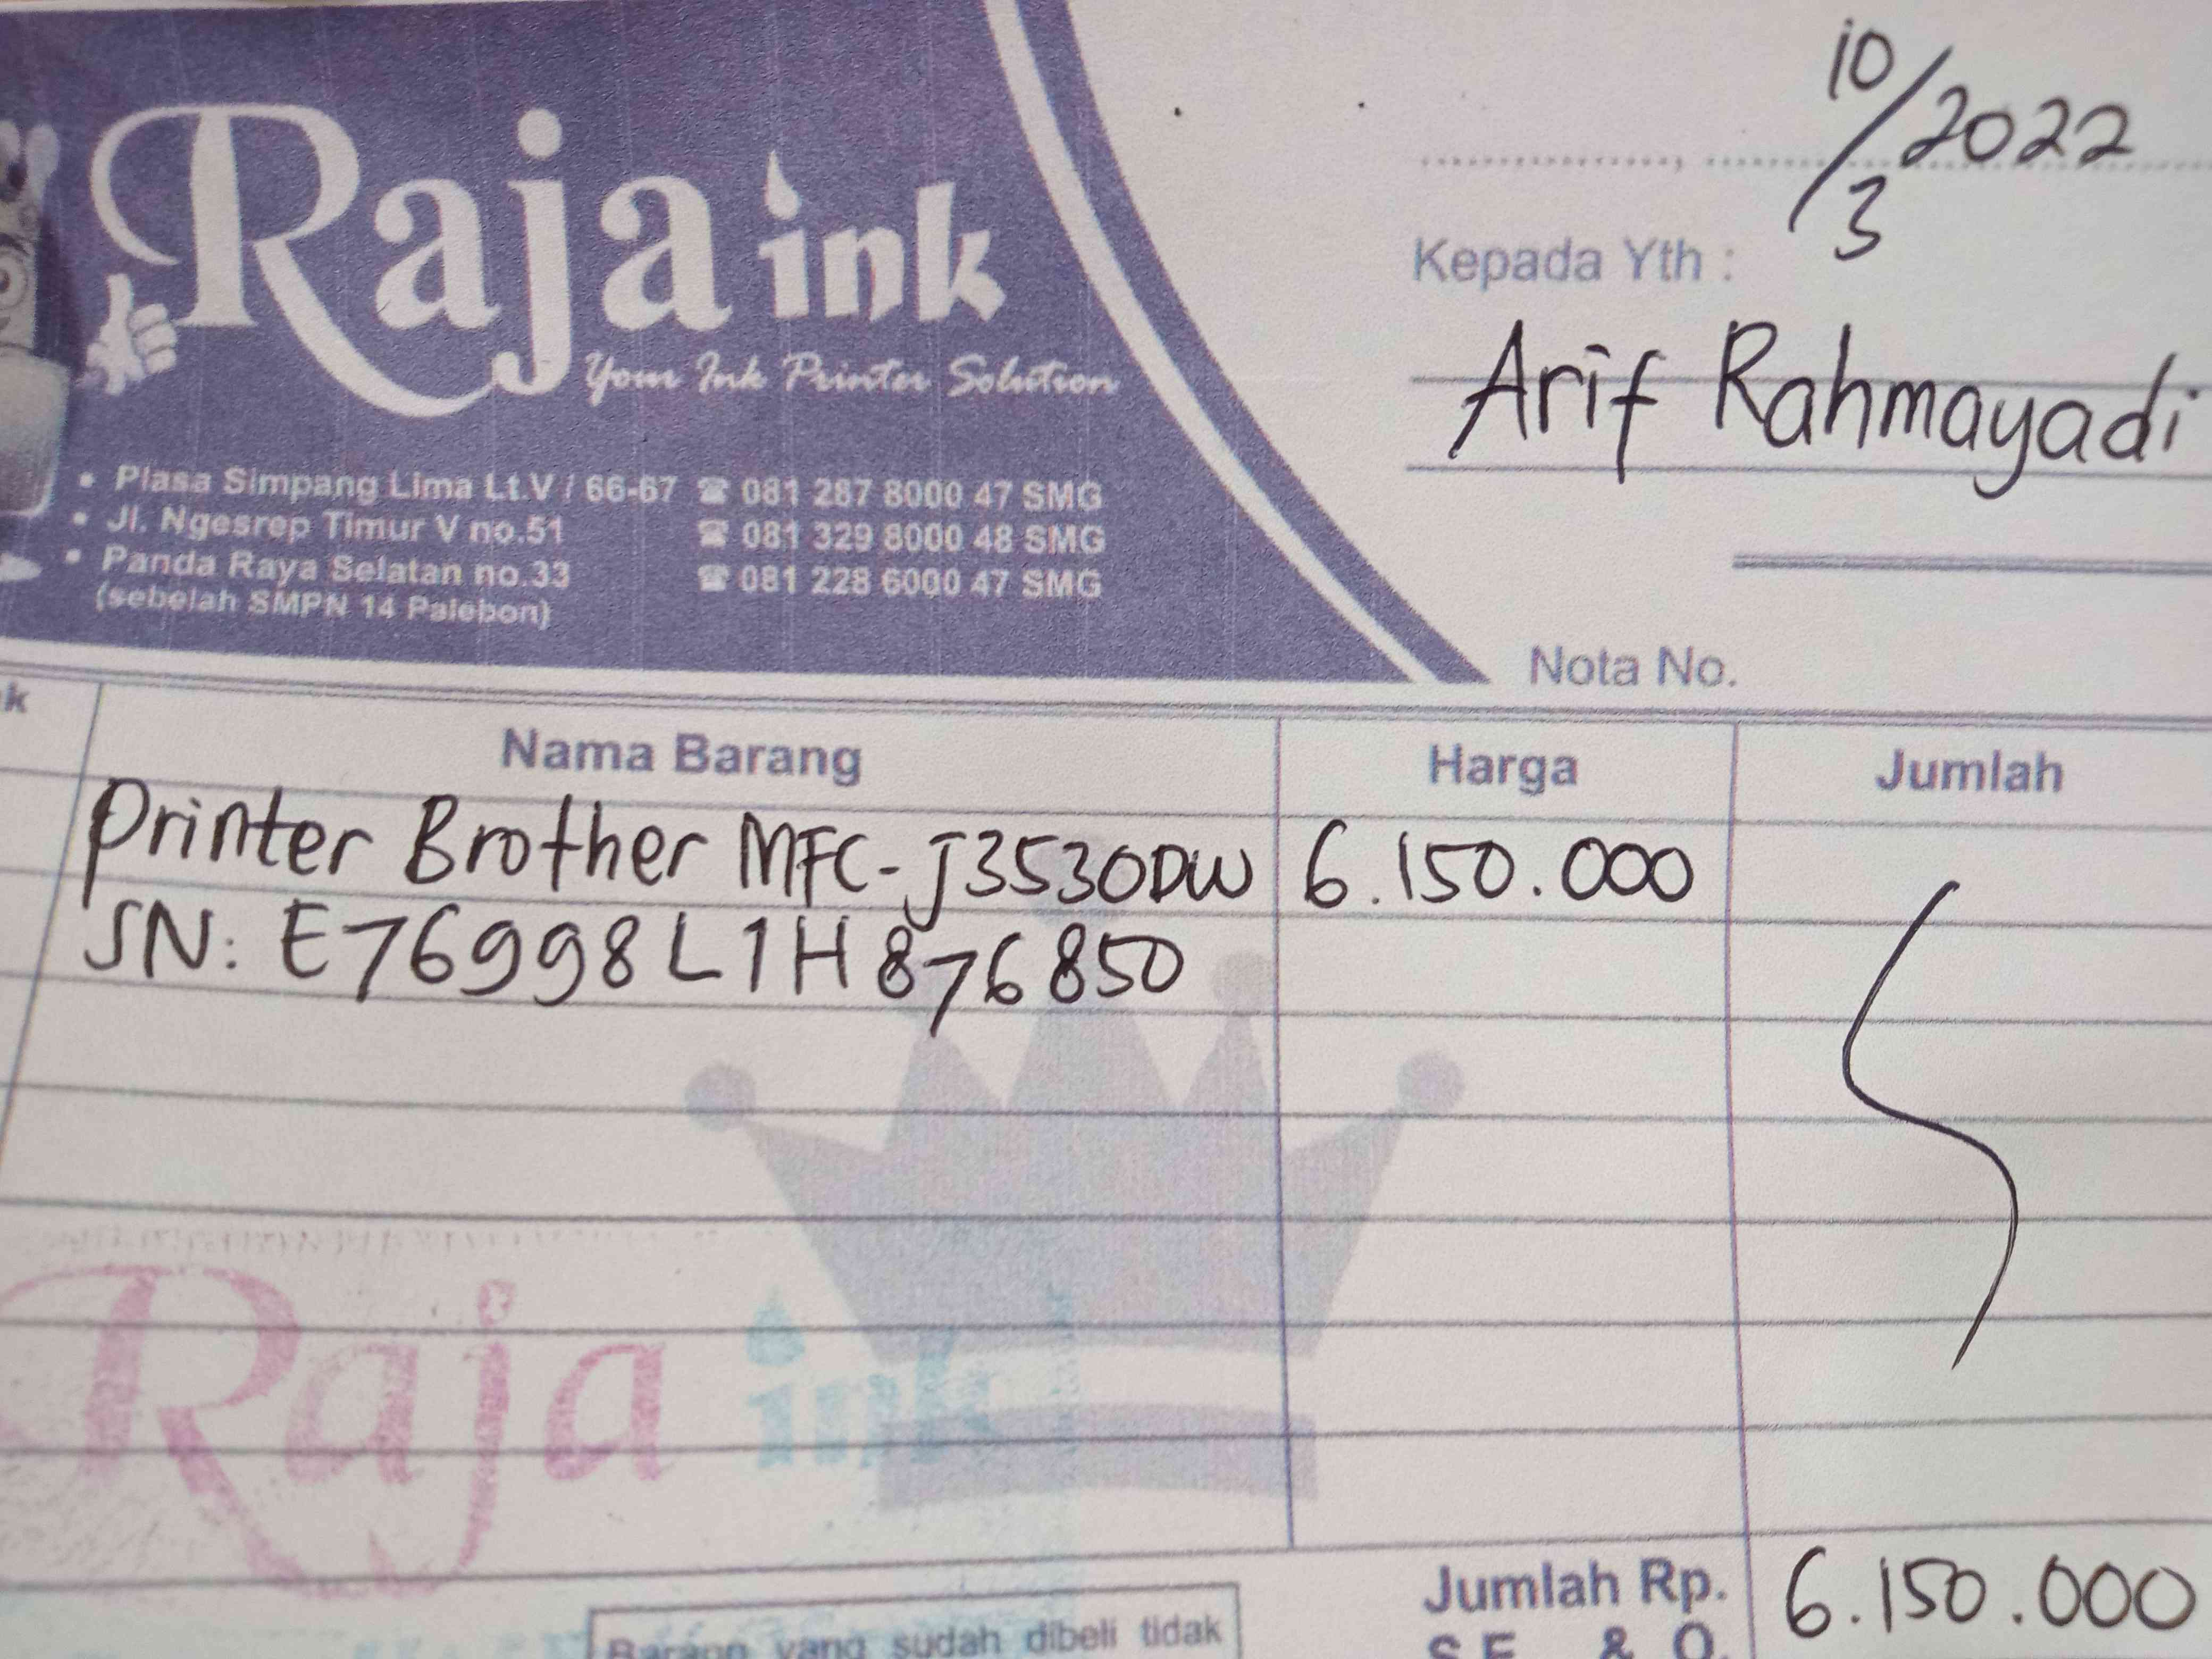 Raja ink
Your Ink Printer Solution
• Plasa Simpang Lima Lt.V / 66-67 ☎ 081 287 8000 47 SMG
• Jl. Ngesrep Timur V no.51 ☎ 081 329 8000 48 SMG
• Panda Raya Selatan no.33 ☎ 081 228 6000 47 SMG
(sebelah SMPN 14 Palebon)
10/3 2022
Kepada Yth :
Arif Rahmayadi
Nota No.
k Nama Barang Harga Jumlah
Printer Brother MFC-J3530DW 6.150.000
SN: E76998L1H876850
Raja ink
Jumlah Rp. 6.150.000
Barang yang sudah dibeli tidak
S.E. & O.